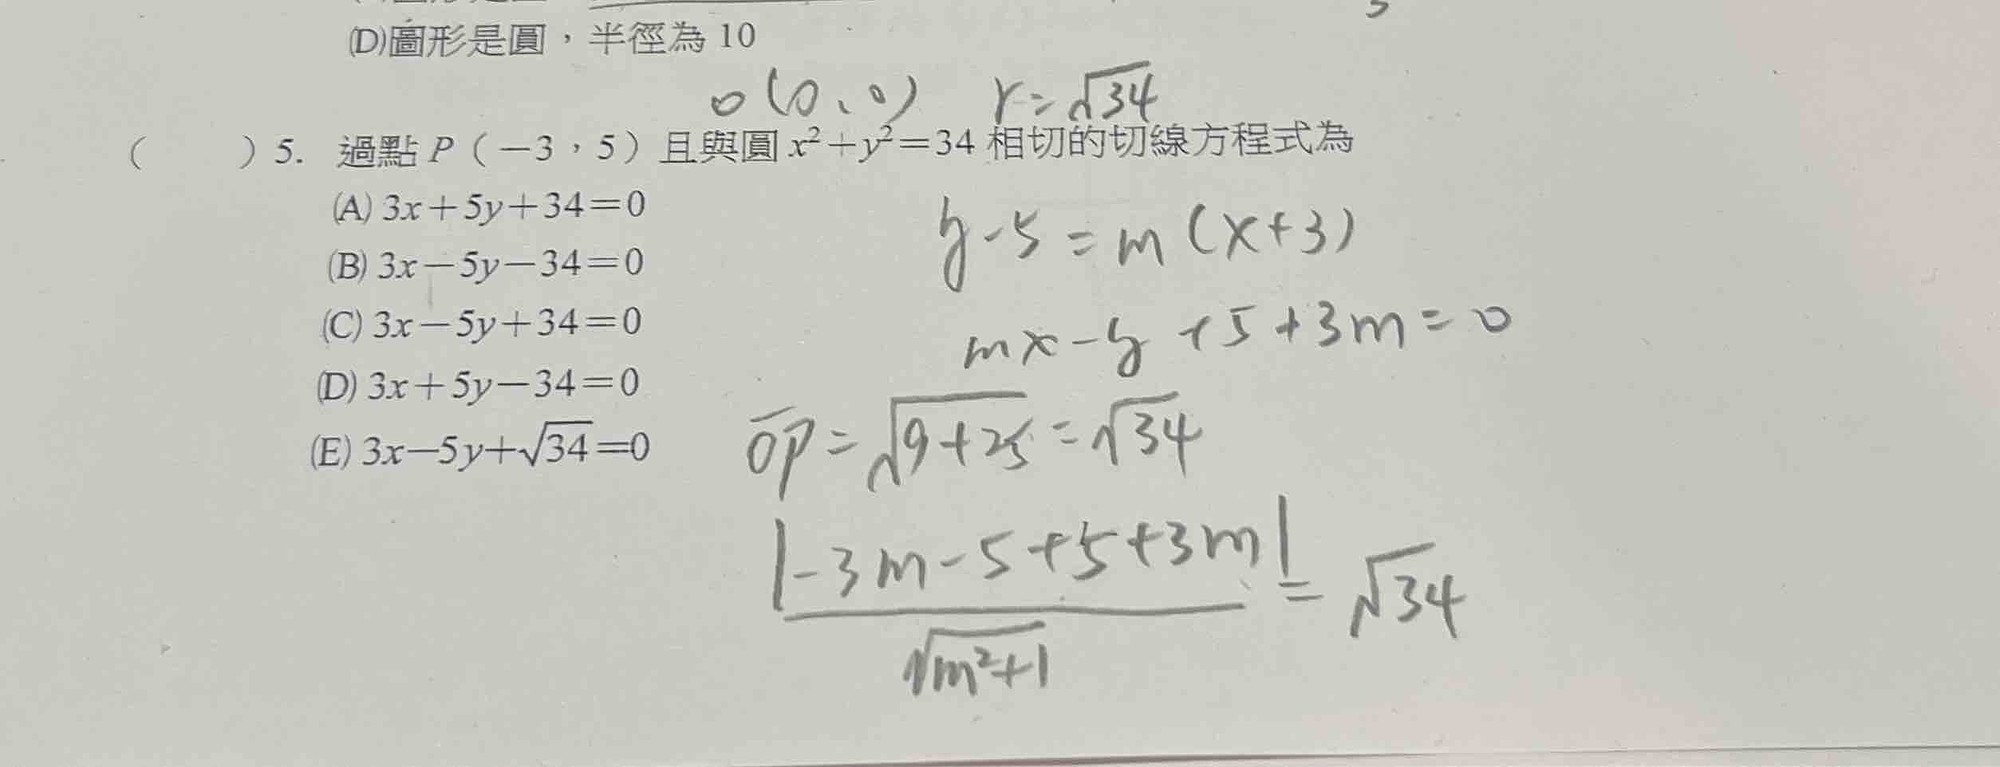 (D)圖形是圓，半徑為 10
O(0、0) r=√34
( ) 5. 過點 P（−3，5）且與圓 x²+y²=34 相切的切線方程式為
(A) 3x+5y+34=0
y-5=m(x+3)
(B) 3x−5y−34=0
(C) 3x−5y+34=0
mx-y+5+3m=0
(D) 3x+5y−34=0
(E) 3x−5y+√34=0
OP=√9+25=√34
|-3m-5+5+3m|
=√34
√m²+1